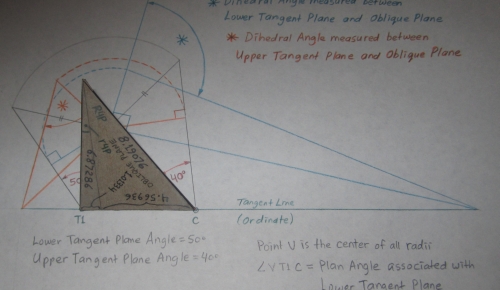 * Dihedral Angle measured between
Lower Tangent Plane and Oblique Plane
* Dihedral Angle measured between
Upper Tangent Plane and Oblique Plane
*
*
50
40°
8.19076
oblique plane
6.87286
4.56936
T1
C
Tangent Line
(Ordinate)
Lower Tangent Plane Angle = 50°
Upper Tangent Plane Angle = 40°
Point V is the center of all radii
∠VT1C = Plan Angle associated with
Lower Tangent Plane